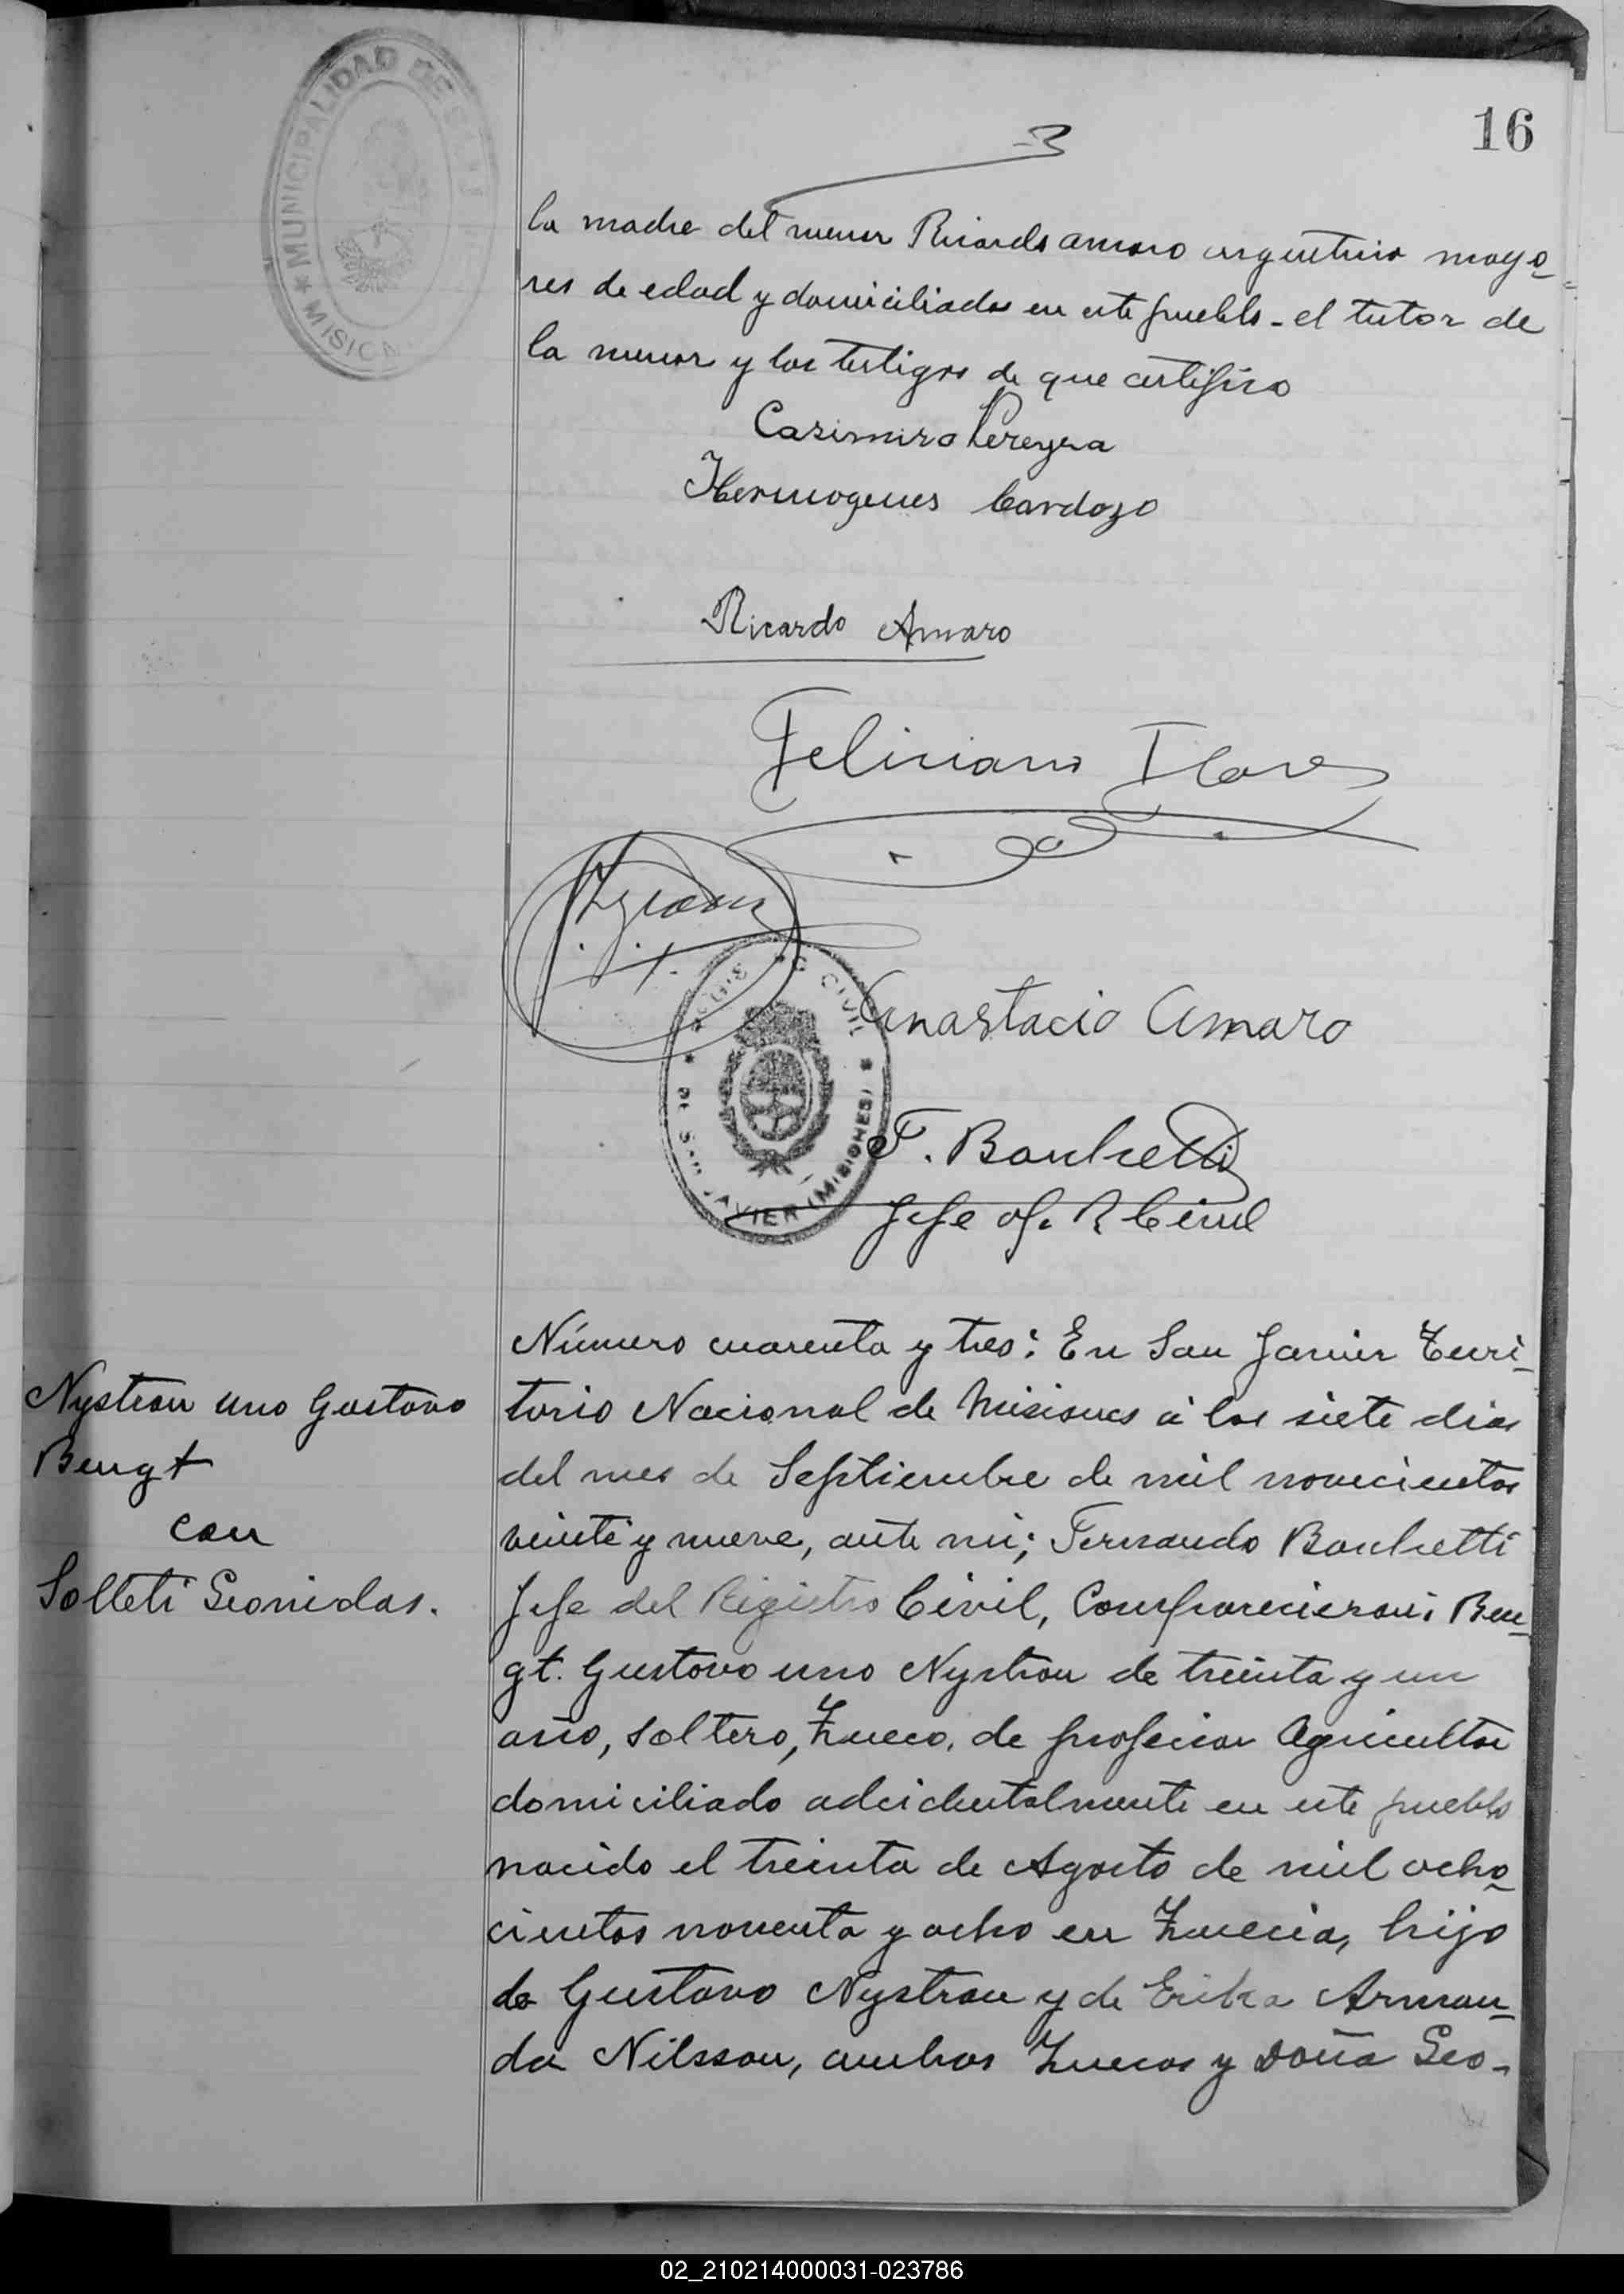 MUNICIPALIDAD DE
MISIONES
16
la madre del menor Ricardo Amaro argentino mayo-
res de edad y domiciliados en este pueblo - el tutor de
la menor y los testigos de que certifico
Casimiro Pereyra
Hermogenes Cardozo
Ricardo Amaro
Feliciano Flores
Anastacio Amaro
REGISTRO CIVIL
DE SAN JAVIER (MISIONES)
F. Banchetti
Jefe of. R Civil
Número cuarenta y tres: En San Javier Terri-
torio Nacional de Misiones á los siete dias
del mes de Septiembre de mil novecientos
veinte y nueve, ante mi; Fernando Banchetti
Jefe del Registro Civil, Comparecieron: Ben-
gt. Gustavo uno Nystron de treinta y un
año, soltero, Zueco, de profecion Agricultor
domiciliado adcidentalmente en este pueblo
nacido el treinta de Agosto de mil ocho-
cientos noventa y ocho en Zuecia, hijo
de Gustavo Nystron y de Erika Arman-
da Nilsson, ambos Zuecos y Doña Leo-
Nystron uno Gustavo
Bengt
con
Solleti Leonidas.
02_210214000031-023786